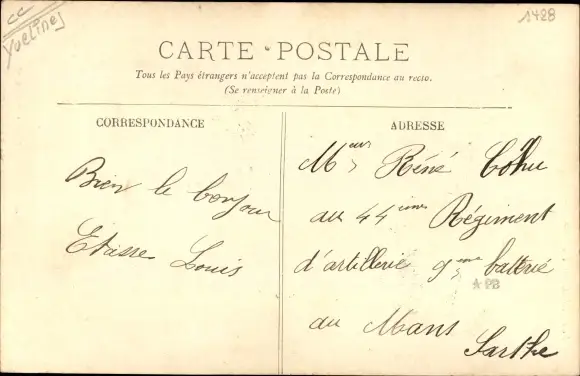 cc
Yvelines
1428
CARTE POSTALE
Tous les Pays étrangers n'acceptent pas la Correspondance au recto.
(Se renseigner à la Poste)
CORRESPONDANCE
Bien le bonjour
Louis
ADRESSE
Meur Réné Cohu
au 44ème Régiment
d'artillerie 9ème batterie
APB
au Mans
Sarthe